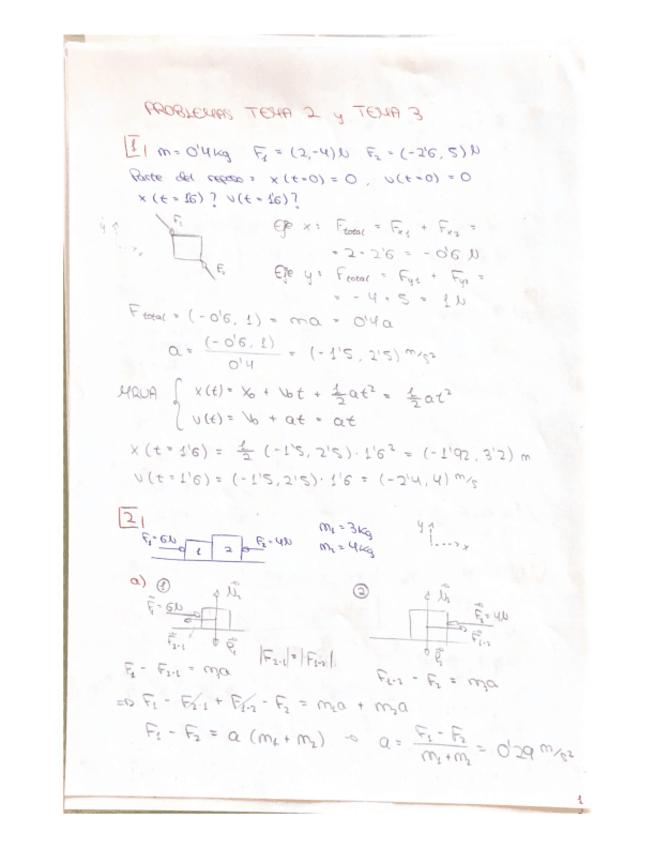 PROBLEMAS TEMA 2 y TEMA 3
1 m = 0'4 kg F₁ = (2,-4) N F₂ = (-2'6, 5) N
Parte del reposo = x(t=0) = 0, v(t=0) = 0
x(t = 1'6)? v(t = 1'6)?
y
F₁
x
F₂
Eje x: Ftotal = Fx₁ + Fx₂ =
= 2 - 2'6 = -0'6 N
Eje y: Ftotal = Fy₁ + Fy₂ =
= -4 + 5 = 1 N
Ftotal = (-0'6, 1) = ma = 0'4a
a = (-0'6, 1) / 0'4 = (-1'5, 2'5) m/s²
MRUA { x(t) = x₀ + v₀t + 1/2 at² = 1/2 at²
v(t) = v₀ + at = at
x(t = 1'6) = 1/2 (-1'5, 2'5) · 1'6² = (-1'92, 3'2) m
v(t = 1'6) = (-1'5, 2'5) · 1'6 = (-2'4, 4) m/s
2
F₁ = 6N 1 2 F₂ = 4N
m₁ = 3kg
m₂ = 4kg
y
x
a) ①
F₁ = 6N
F₂₋₁
P₁
②
N₂
F₂ = 4N
F₁₋₂
P₂
|F₂₋₁| = |F₁₋₂|
F₁ - F₂₋₁ = m₁a
F₁₋₂ - F₂ = m₂a
⇒ F₁ - F₂₋₁ + F₁₋₂ - F₂ = m₁a + m₂a
F₁ - F₂ = a (m₁ + m₂) → a = F₁ - F₂ / m₁ + m₂ = 0'29 m/s²
1